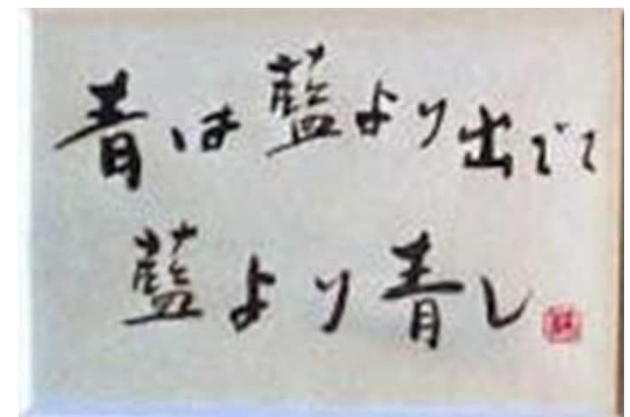 青は藍より出でて
藍より青し